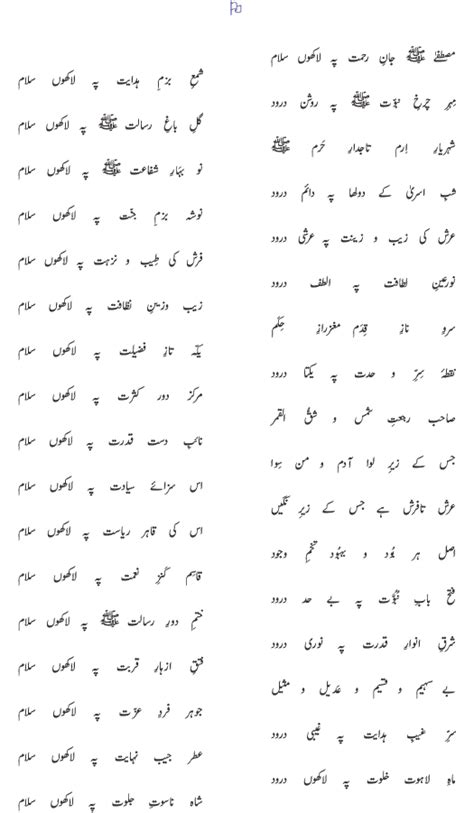 مصطفیٰ ﷺ جانِ رحمت پہ لاکھوں سلام
شمعِ بزمِ ہدایت پہ لاکھوں سلام
مہرِ چرخِ نبوّت ﷺ پہ روشن درود
گلِ باغِ رسالت ﷺ پہ لاکھوں سلام
شہریارِ اِرم تاجدارِ حَرم ﷺ
نو بہارِ شفاعت ﷺ پہ لاکھوں سلام
شبِ اسریٰ کے دولھا پہ دائم درود
نوشۂ بزمِ جنّت پہ لاکھوں سلام
عرش کی زیب و زینت پہ عرشی درود
فرش کی طِیب و نزہت پہ لاکھوں سلام
نورِعینِ لطافت پہ الطف درود
زیب وزینِ نظافت پہ لاکھوں سلام
سروِ نازِ قِدَم مغزِرازِ حِکَم
یکّہ تازِ فضیلت پہ لاکھوں سلام
نقطۂ سِرِّ و حدت پہ یکتا درود
مرکزِ دورِ کثرت پہ لاکھوں سلام
صاحبِ رجعتِ شمس و شقُّ القمر
نائبِ دستِ قدرت پہ لاکھوں سلام
جس کے زیرِ لوا آدم و من سِوا
اس سزائے سیادت پہ لاکھوں سلام
عرش تافرش ہے جس کے زیرِ نگیں
اس کی قاہر ریاست پہ لاکھوں سلام
اصلِ ہر بُود و بہبُود تخمِ وجود
قاسِمِ کنزِ نعمت پہ لاکھوں سلام
فتحِ بابِ نبُوَّت پہ بے حد درود
ختمِ دورِ رسالت ﷺ پہ لاکھوں سلام
شرقِ انوارِ قدرت پہ نوری درود
فتقِ ازہارِ قربت پہ لاکھوں سلام
بے سہیم و قسیم و عَدیل و مثیل
جوہرِ فردِ عزّت پہ لاکھوں سلام
سرِّ غیبِ ہدایت پہ غیبی درود
عطرِ جیبِ نہایت پہ لاکھوں سلام
ماہِ لاہوتِ خلوت پہ لاکھوں درود
شاہِ ناسوتِ جلوت پہ لاکھوں سلام